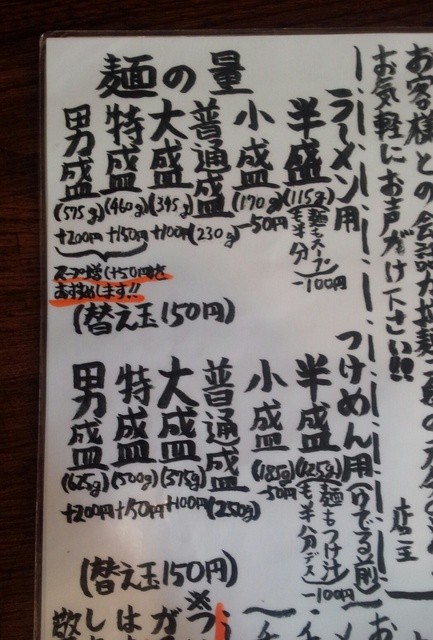 お客様との会話
お気軽にお声がけ下さい!!
店主
麺の量
ラーメン用
半盛
(115g)
麺もスープも半分
-100円
小盛
(170g)
-50円
普通盛
(230g)
大盛
(345g)
+100円
特盛
(460g)
+150円
男盛
(575g)
+200円
スープ増(+50円)を
お勧めします!!
(替え玉150円)
つけめん用(ゆでる前)
半盛
(125g)
麺もつけ汁も半分デス
-100円
小盛
(185g)
-50円
普通盛
(250g)
大盛
(375g)
+100円
特盛
(500g)
+150円
男盛
(625g)
+200円
(替え玉150円)